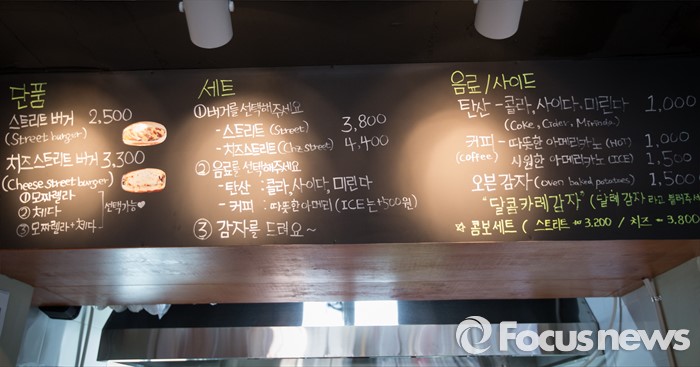 단품
스트리트 버거 2,500
(Street burger)
치즈스트리트 버거 3,300
(Cheese street burger)
①모짜렐라
②체다
③모짜렐라+체다
선택가능♥
세트
①버거를 선택해주세요
-스트리트 (Street) 3,800
-치즈스트리트 (Chz street) 4,400
②음료를 선택해주세요
-탄산 : 콜라, 사이다, 미린다
-커피 : 따뜻한아메리 (ICE는+500원)
③ 감자를 드려요~
음료/사이드
탄산 - 콜라, 사이다, 미린다 1,000
(Coke, Cider, Mirinda)
커피 - 따뜻한 아메리카노 (HOT) 1,000
(Coffee) 시원한 아메리카노 (ICE) 1,500
오븐감자 (oven baked potatoes) 1,500
"달콤카레감자" (달레감자라고 불러주세
☆ 콤보세트 ( 스트리트 ₩3,200 / 치즈 ~ 3,800
Focusnews